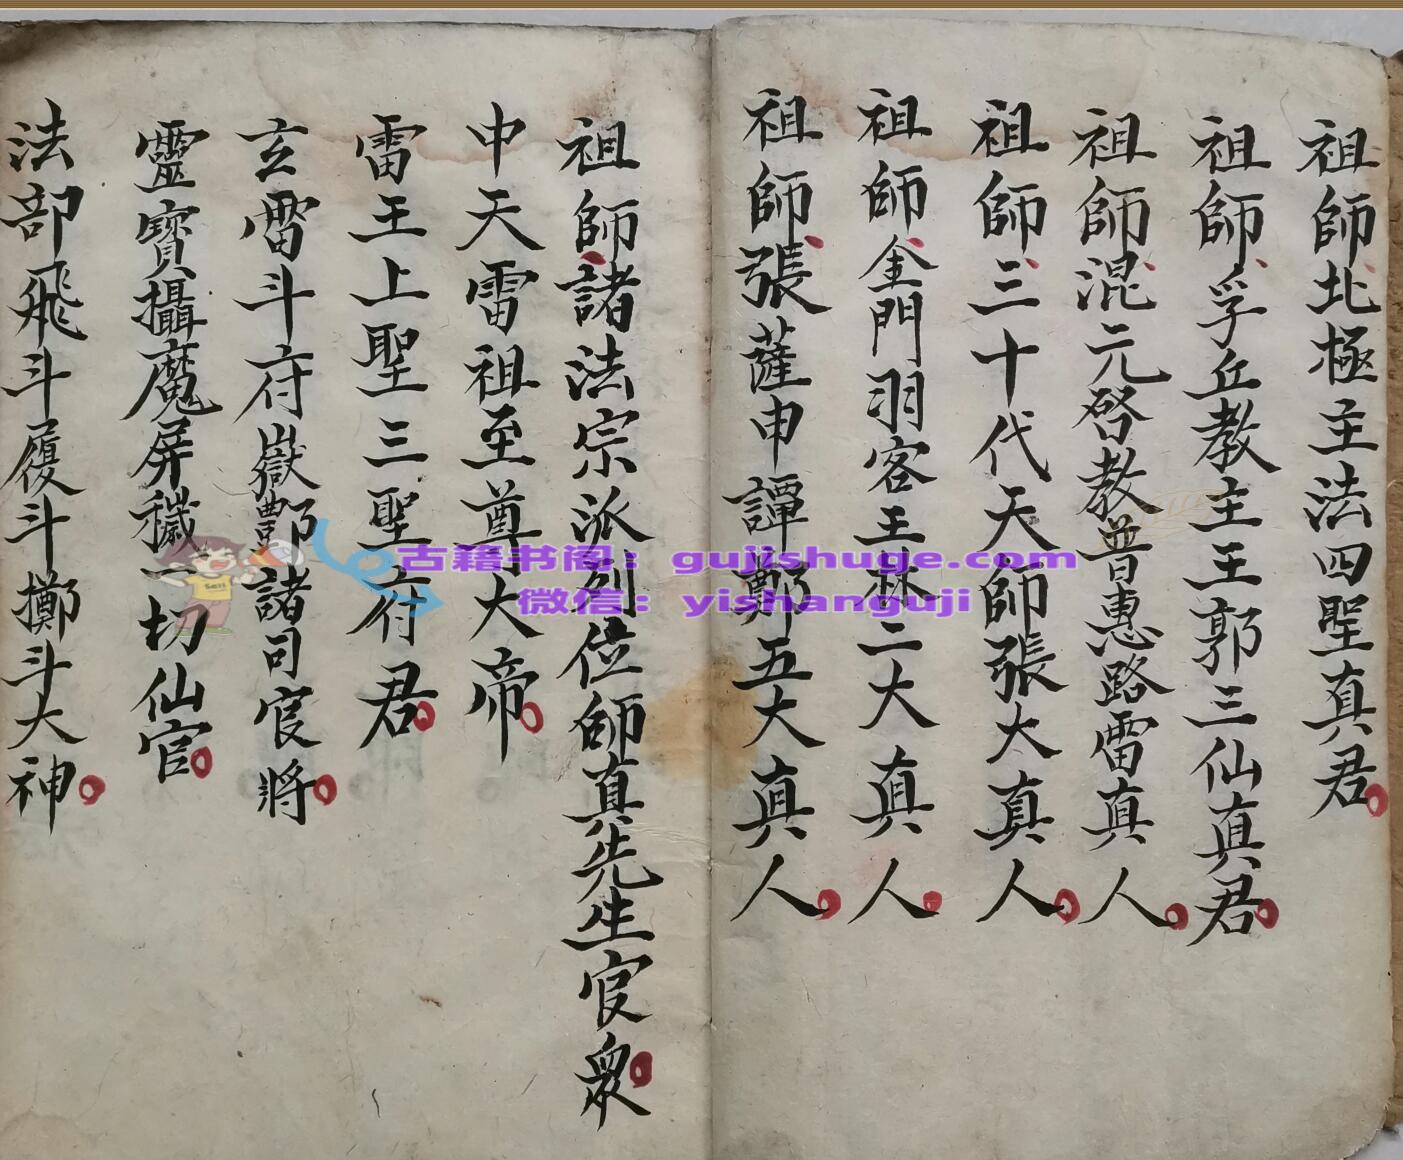 祖師北極主法四聖真君
祖師孚丘教主王郭三仙真君
祖師混元啓教普惠路雷真人
祖師三十代天師張大真人
祖師金門羽客王林二大真人
祖師張薩申譚鄭五大真人
祖師諸法宗派列位師真先生官衆
中天雷祖至尊大帝
雷王上聖三聖府君
玄雷斗府嶽酆諸司官將
靈寶攝魔屏穢一切仙官
法部飛斗履斗擲斗大神
古籍书阁：gujishuge.com
微信：yishanguji